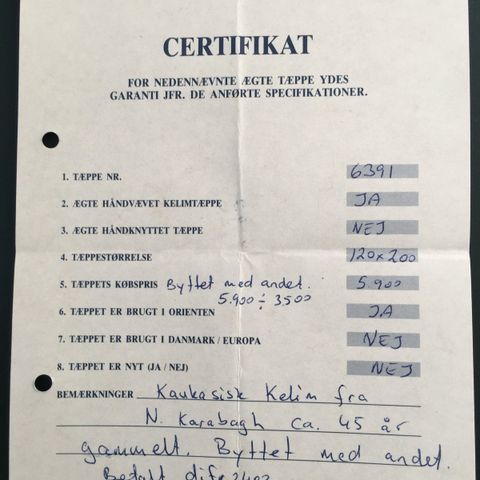 CERTIFIKAT
FOR NEDENNÆVNTE ÆGTE TÆPPE YDES
GARANTI JFR. DE ANFØRTE SPECIFIKATIONER.
1. TÆPPE NR. 6391
2. ÆGTE HÅNDVÆVET KELIMTÆPPE JA
3. ÆGTE HÅNDKNYTTET TÆPPE NEJ
4. TÆPPESTØRRELSE 120x200
5. TÆPPETS KØBSPRIS Byttet med andet. 5.900
5.900 ÷ 3500
6. TÆPPET ER BRUGT I ORIENTEN JA
7. TÆPPET ER BRUGT I DANMARK / EUROPA NEJ
8. TÆPPET ER NYT (JA / NEJ) NEJ
BEMÆRKNINGER Kaukasisk Kelim fra
N. Karabagh ca. 45 år
gammelt. Byttet med andet.
Betalt